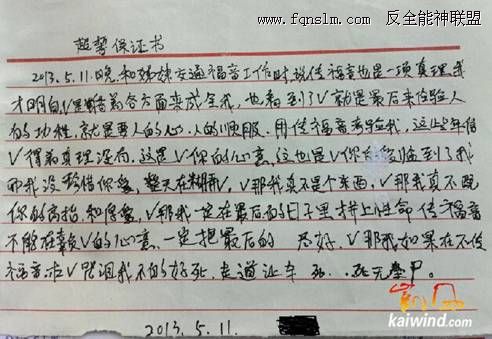 反全能神联盟
www.fqnslm.com
起誓保证书
2013.5.11.晚和姊妹交通福音工作时说传福音也是一项真理,我
才明白V是借着各方面来成全我,也看到了V就是最后来体验人
的功性,就是要人的心,人的顺服,用传福音考验我,这些年信
V得着真理没有,这是V你的心意,这也是V你临到了我
而我没珍惜你爱,整天在糊弄,V那我真不是个东西,V那我真不配
你的高抬和爱,V那我一定在最后的日子里拼上性命传福音
不能在辜负V的心意,一定把最后的 尽好,V那我如果在不传
福音求V咒诅我不的好死,走道让车
2013.5.11.
凯风
kaiwind.com